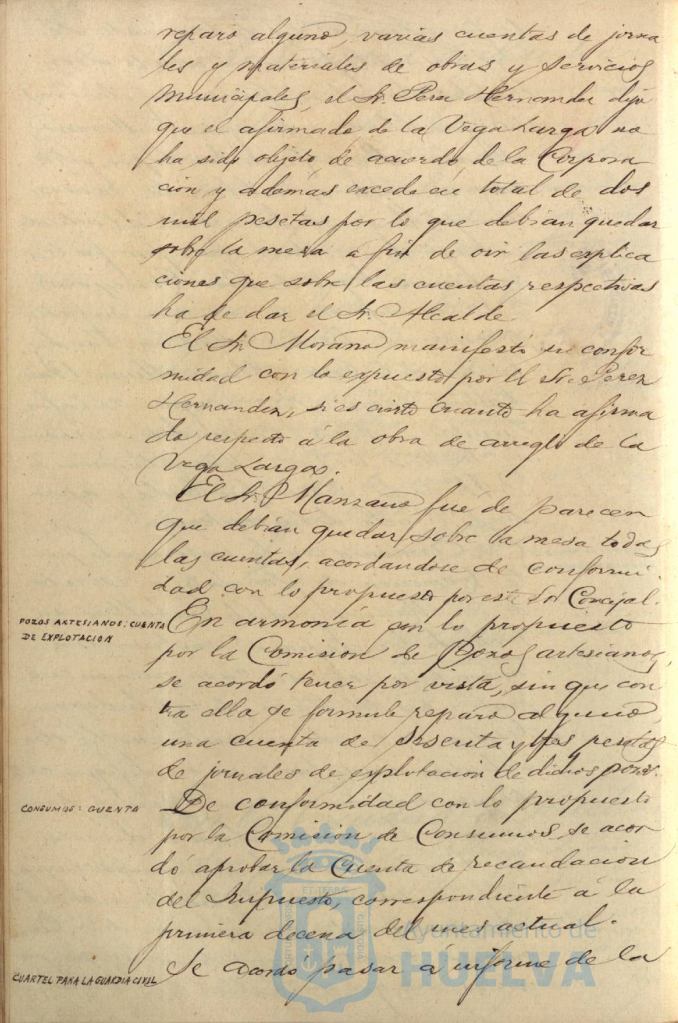 reparo alguno, varias cuentas de jorna
les y materiales de obras y servicios
municipales, el Sr. Perez Hernandez dijo
que el afirmado de la Vega Larga no
ha sido objeto de acuerdo de la Corpora
cion y además excede en total de dos
mil pesetas por lo que debian quedar
sobre la mesa a fin de oir las explica
ciones que sobre las cuentas respectivas
ha de dar el Sr. Alcalde.
El Sr. Moraño manifestó su confor
midad con lo expuesto por el Sr. Perez
Hernandez, si es cierto cuanto ha afirma
do respecto á la obra de arreglo de la
Vega Larga.
El Sr. Manzano fué de parecer
que debian quedar sobre la mesa todas
las cuentas, acordandose de conformi
dad con lo propuesto por este Sor Concejal.
POZOS ARTESIANOS: CUENTA
DE EXPLOTACION
En armonía con lo propuesto
por la Comision de Pozos artesianos,
se acordó tener por vista, sin que con
tra ella se formule reparo alguno,
una cuenta de sesenta y tres pesetas
de jornales de explotacion de dichos pozos.
CONSUMOS: CUENTA
De conformidad con lo propuesto
por la Comision de Consumos, se acor
dó aprobar la Cuenta de recaudacion
del Impuesto, correspondiente á la
primera decena del mes actual.
CUARTEL PARA LA GUARDIA CIVIL
Se acordó pasar á informe de la
Ayuntamiento de
HUELVA